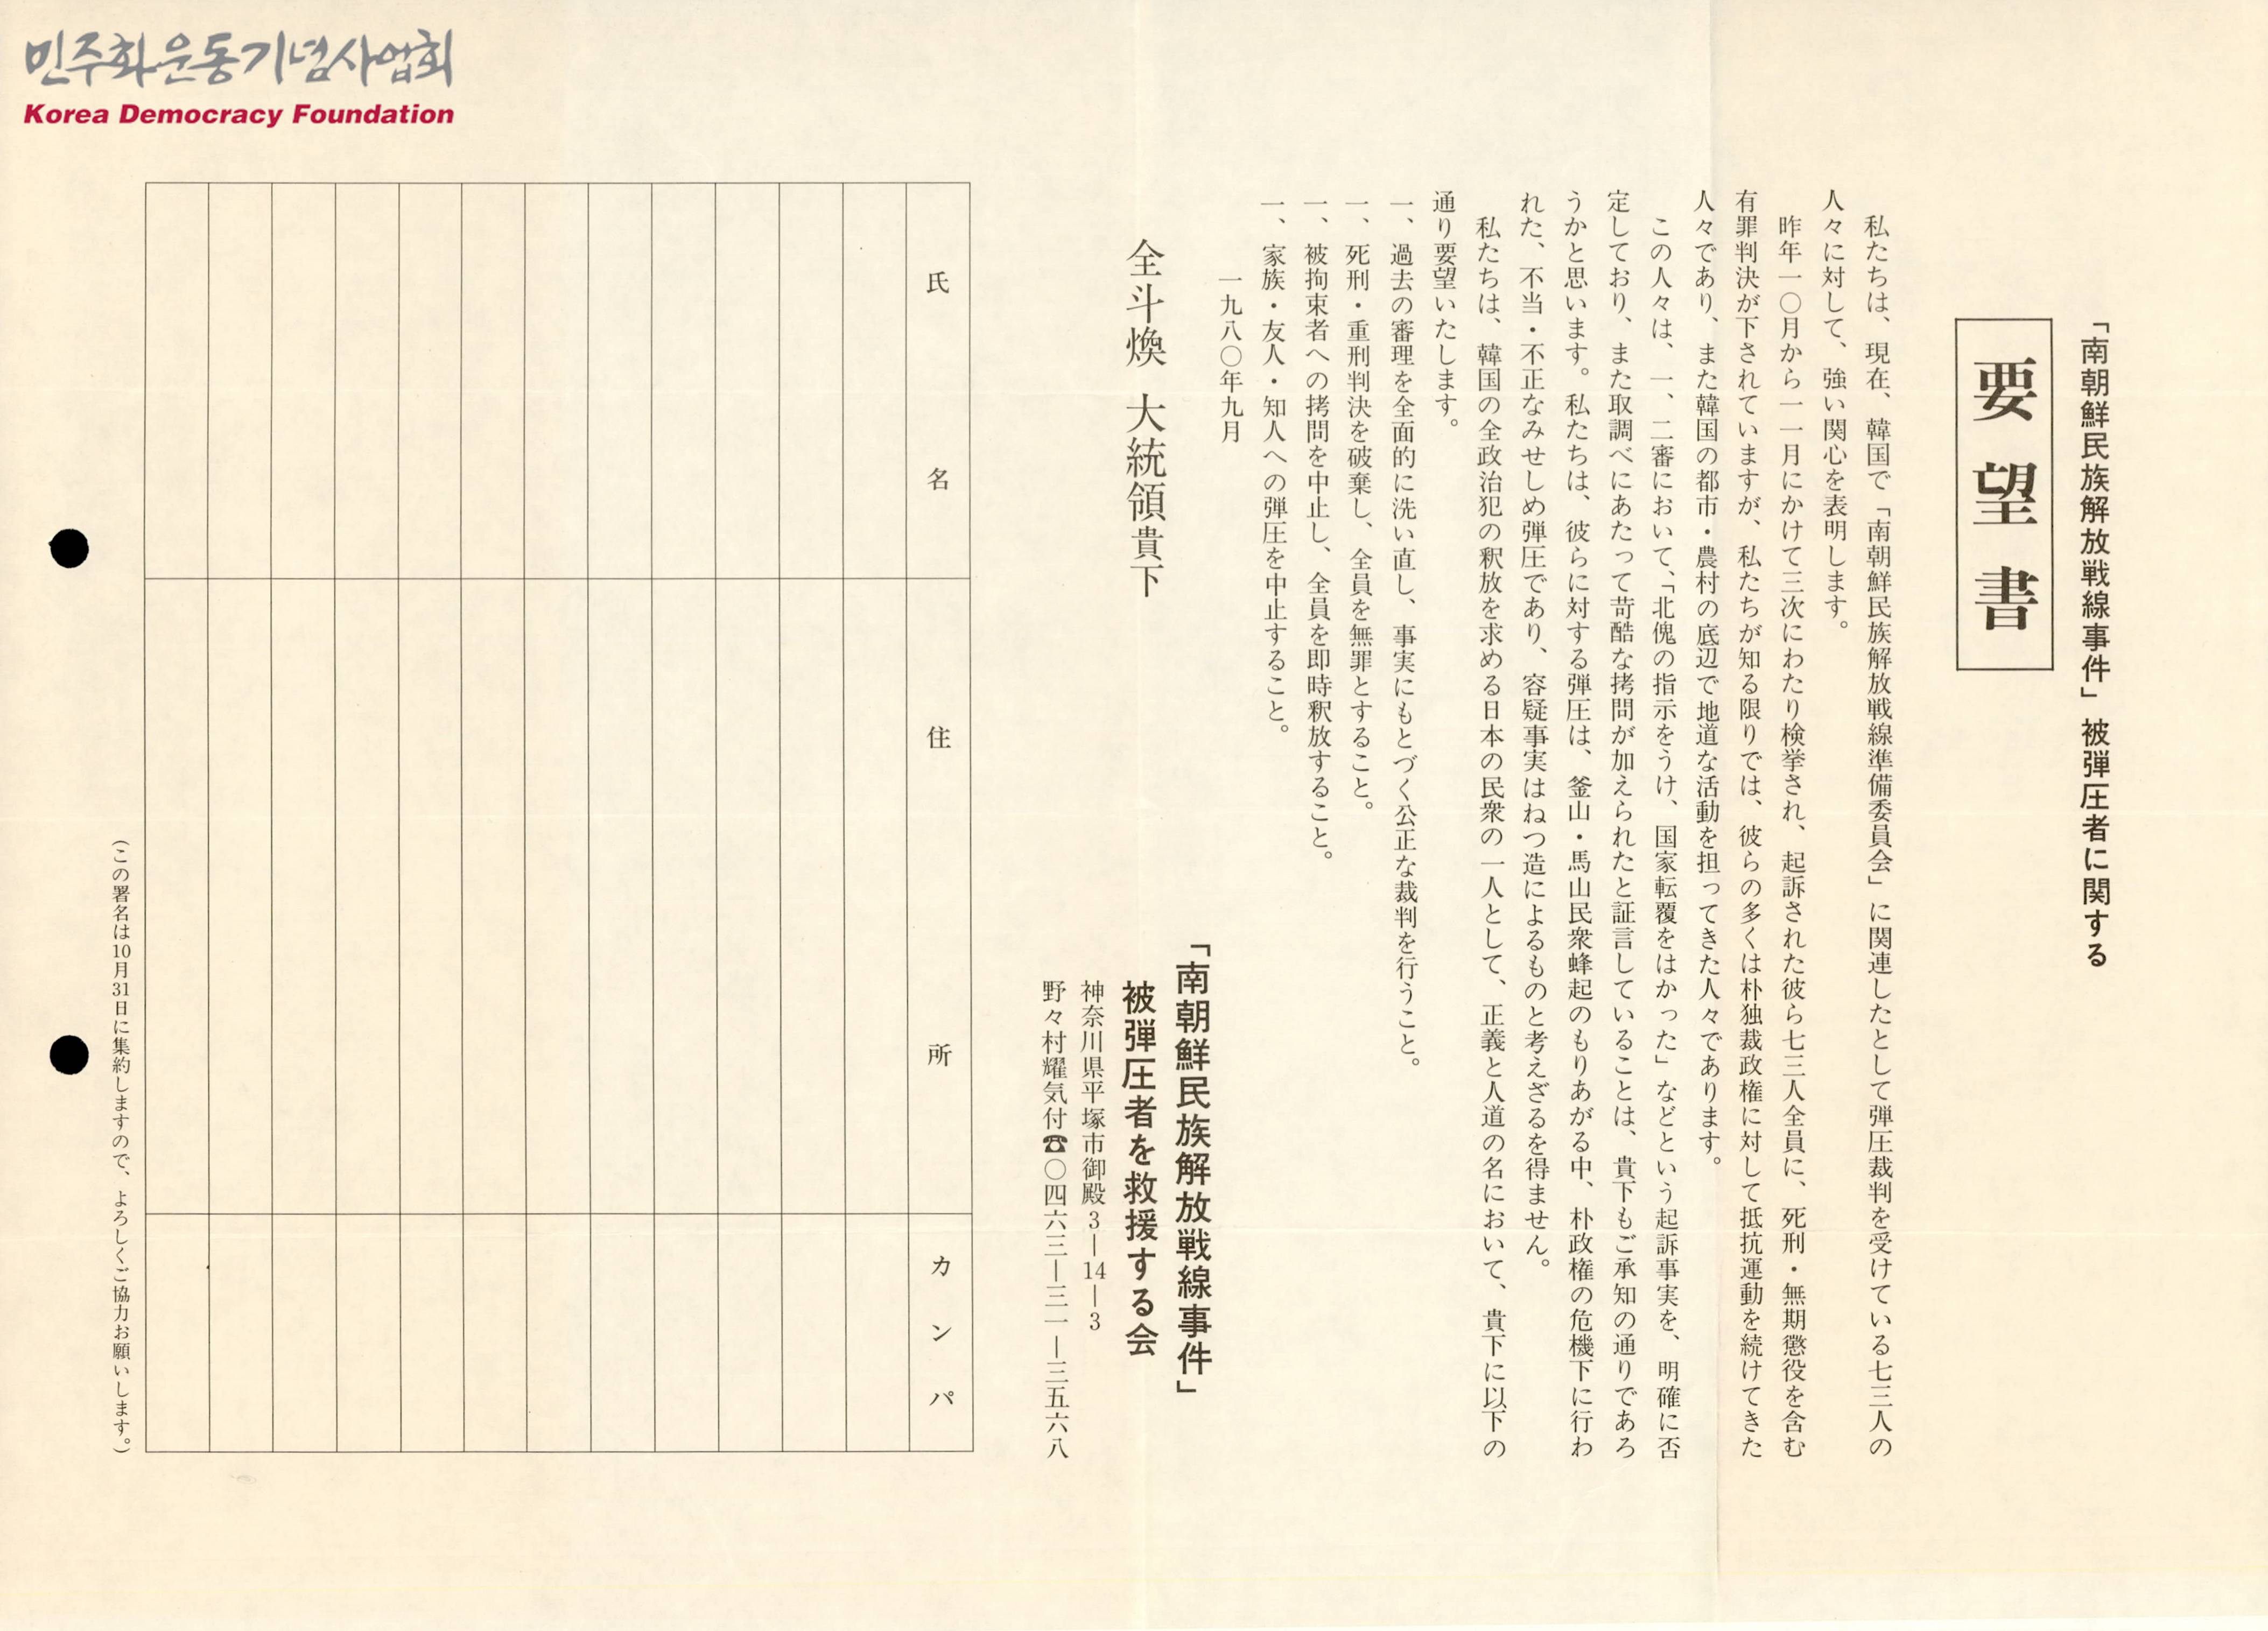 민주화운동기념사업회
Korea Democracy Foundation
「南朝鮮民族解放戦線事件」被弾圧者に関する
要望書
私たちは、現在、韓国で「南朝鮮民族解放戦線準備委員会」に関連したとして弾圧裁判を受けている七三人の
人々に対して、強い関心を表明します。
昨年一〇月から一一月にかけて三次にわたり検挙され、起訴された彼ら七三人全員に、死刑・無期懲役を含む
有罪判決が下されていますが、私たちが知る限りでは、彼らの多くは朴独裁政権に対して抵抗運動を続けてきた
人々であり、また韓国の都市・農村の底辺で地道な活動を担ってきた人々であります。
この人々は、一、二審において、「北傀の指示をうけ、国家転覆をはかった」などという起訴事実を、明確に否
定しており、また取調べにあたって苛酷な拷問が加えられたと証言していることは、貴下もご承知の通りであろ
うかと思います。私たちは、彼らに対する弾圧は、釜山・馬山民衆蜂起のもりあがる中、朴政権の危機下に行わ
れた、不当・不正なみせしめ弾圧であり、容疑事実はねつ造によるものと考えざるを得ません。
私たちは、韓国の全政治犯の釈放を求める日本の民衆の一人として、正義と人道の名において、貴下に以下の
通り要望いたします。
一、過去の審理を全面的に洗い直し、事実にもとづく公正な裁判を行うこと。
一、死刑・重刑判決を破棄し、全員を無罪とすること。
一、被拘束者への拷問を中止し、全員を即時釈放すること。
一、家族・友人・知人への弾圧を中止すること。
一九八〇年九月
全斗煥 大統領貴下
「南朝鮮民族解放戦線事件」
被弾圧者を救援する会
神奈川県平塚市御殿3—14—3
野々村耀気付☎〇四六三—三一—三五六八
氏名 住所 カンパ
(この署名は10月31日に集約しますので、よろしくご協力お願いします。)